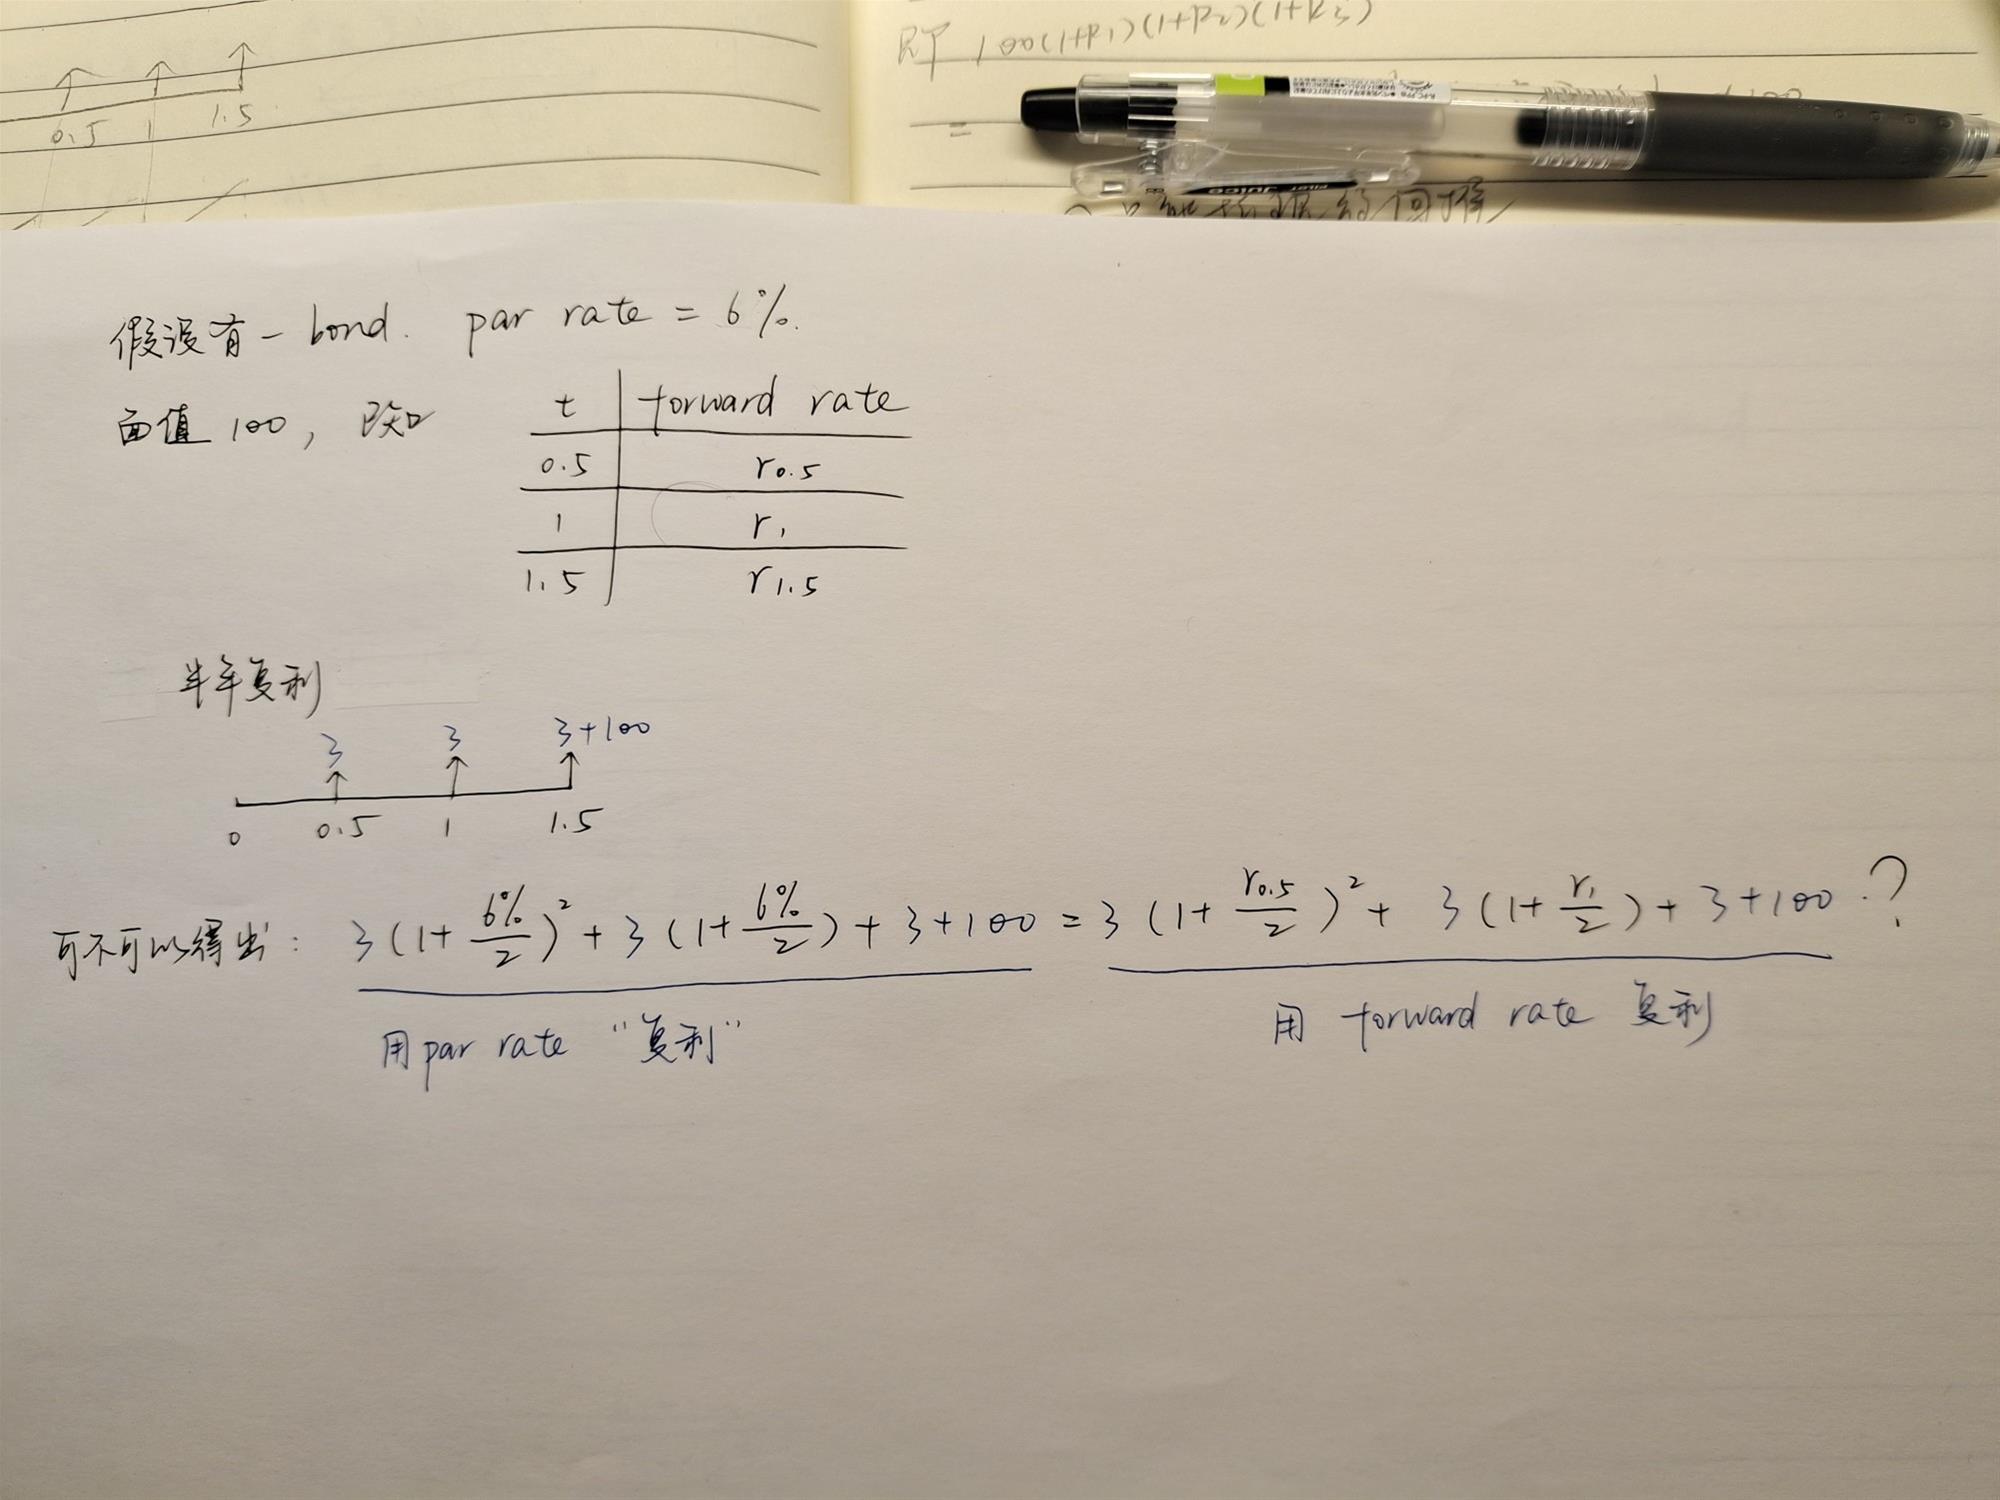 0.5 1 1.5
即 100(1+R1)(1+R2)(1+R3)
=
假设有一 bond. par rate = 6%.
面值 100, 已知
t forward rate
0.5 r0.5
1 r1
1.5 r1.5
半年复利
3 3 3+100
0 0.5 1 1.5
可不可以得出: 3(1+6%/2)²+3(1+6%/2)+3+100=3(1+r0.5/2)²+3(1+r1/2)+3+100.?
用par rate "复利"
用 forward rate 复利